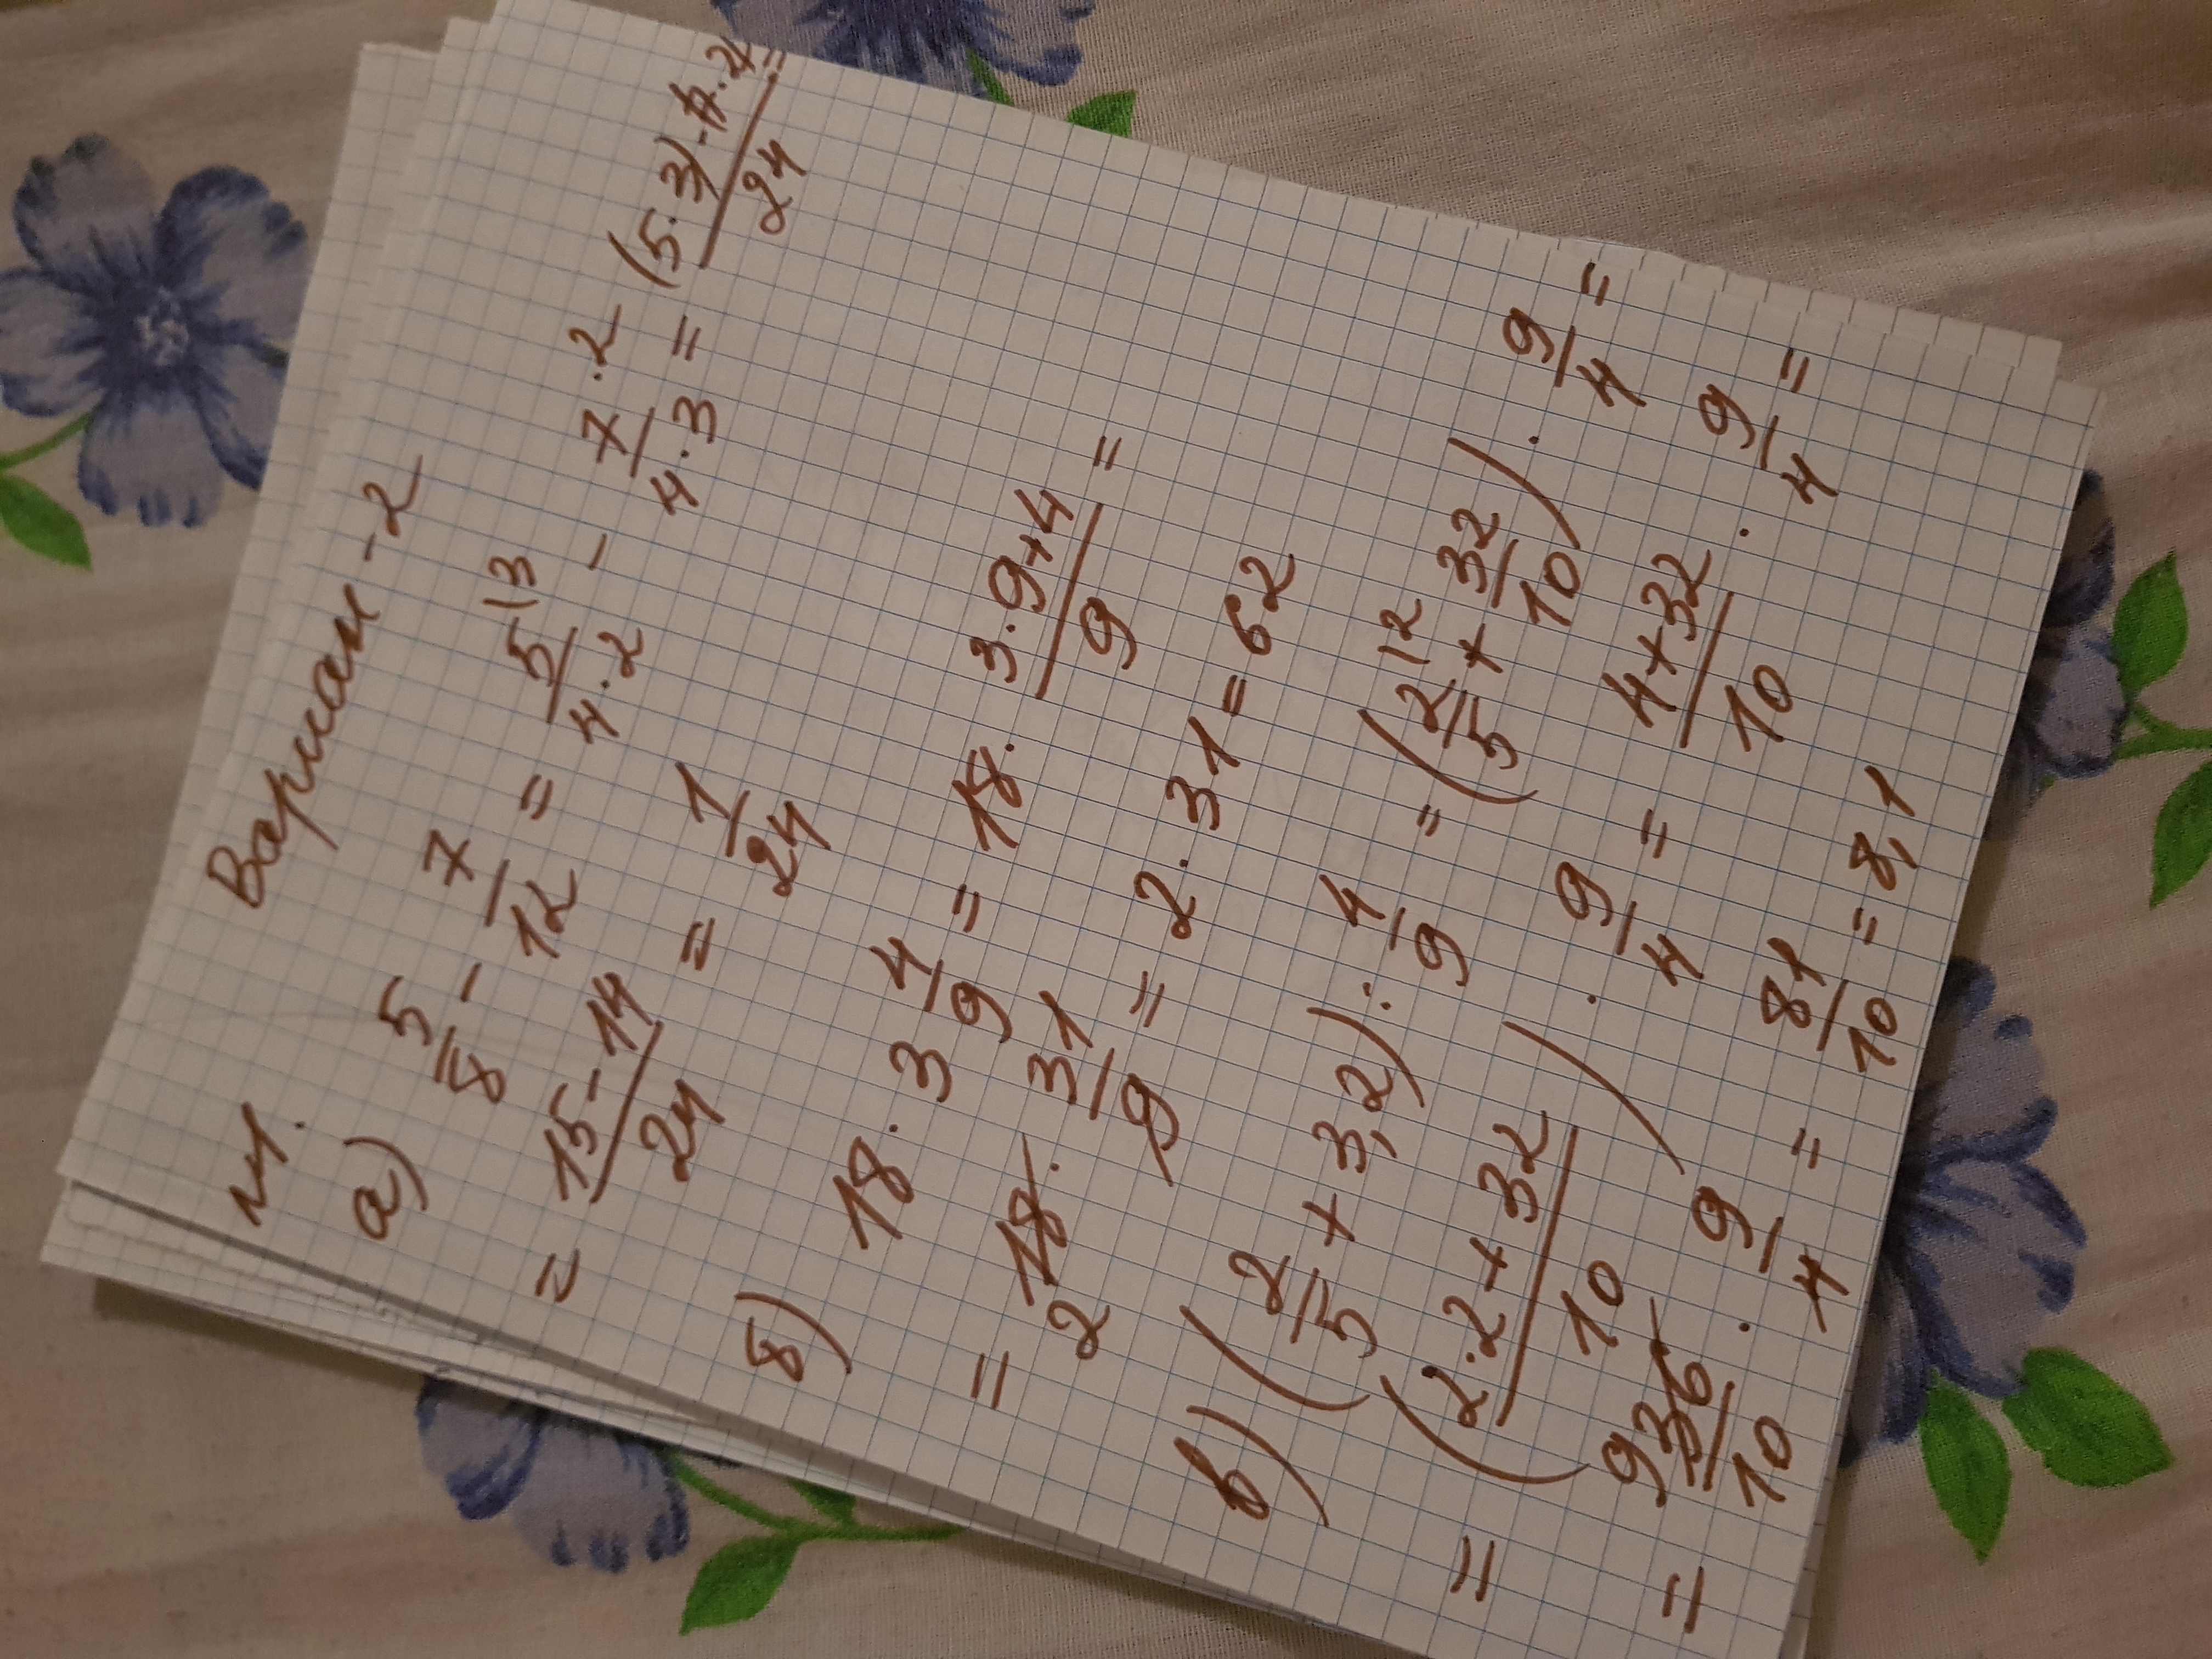 Вариан - 2
№1.
а) 5/8 - 7/12 = 5\3/4·2 - 7·2/4·3 = (5·3)-7·2/24 =
= 15-14/24 = 1/24
б) 18 · 3 4/9 = 18 · 3·9+4/9 =
= 18 2 · 31/9 = 2 · 31 = 62
в) (2/5 + 3,2) : 4/9 = (2/5\2 + 32/10) · 9/4 =
= (2·2+32/10) · 9/4 = 4+32/10 · 9/4 =
= 9 36/10 · 9/4 = 81/10 = 8,1